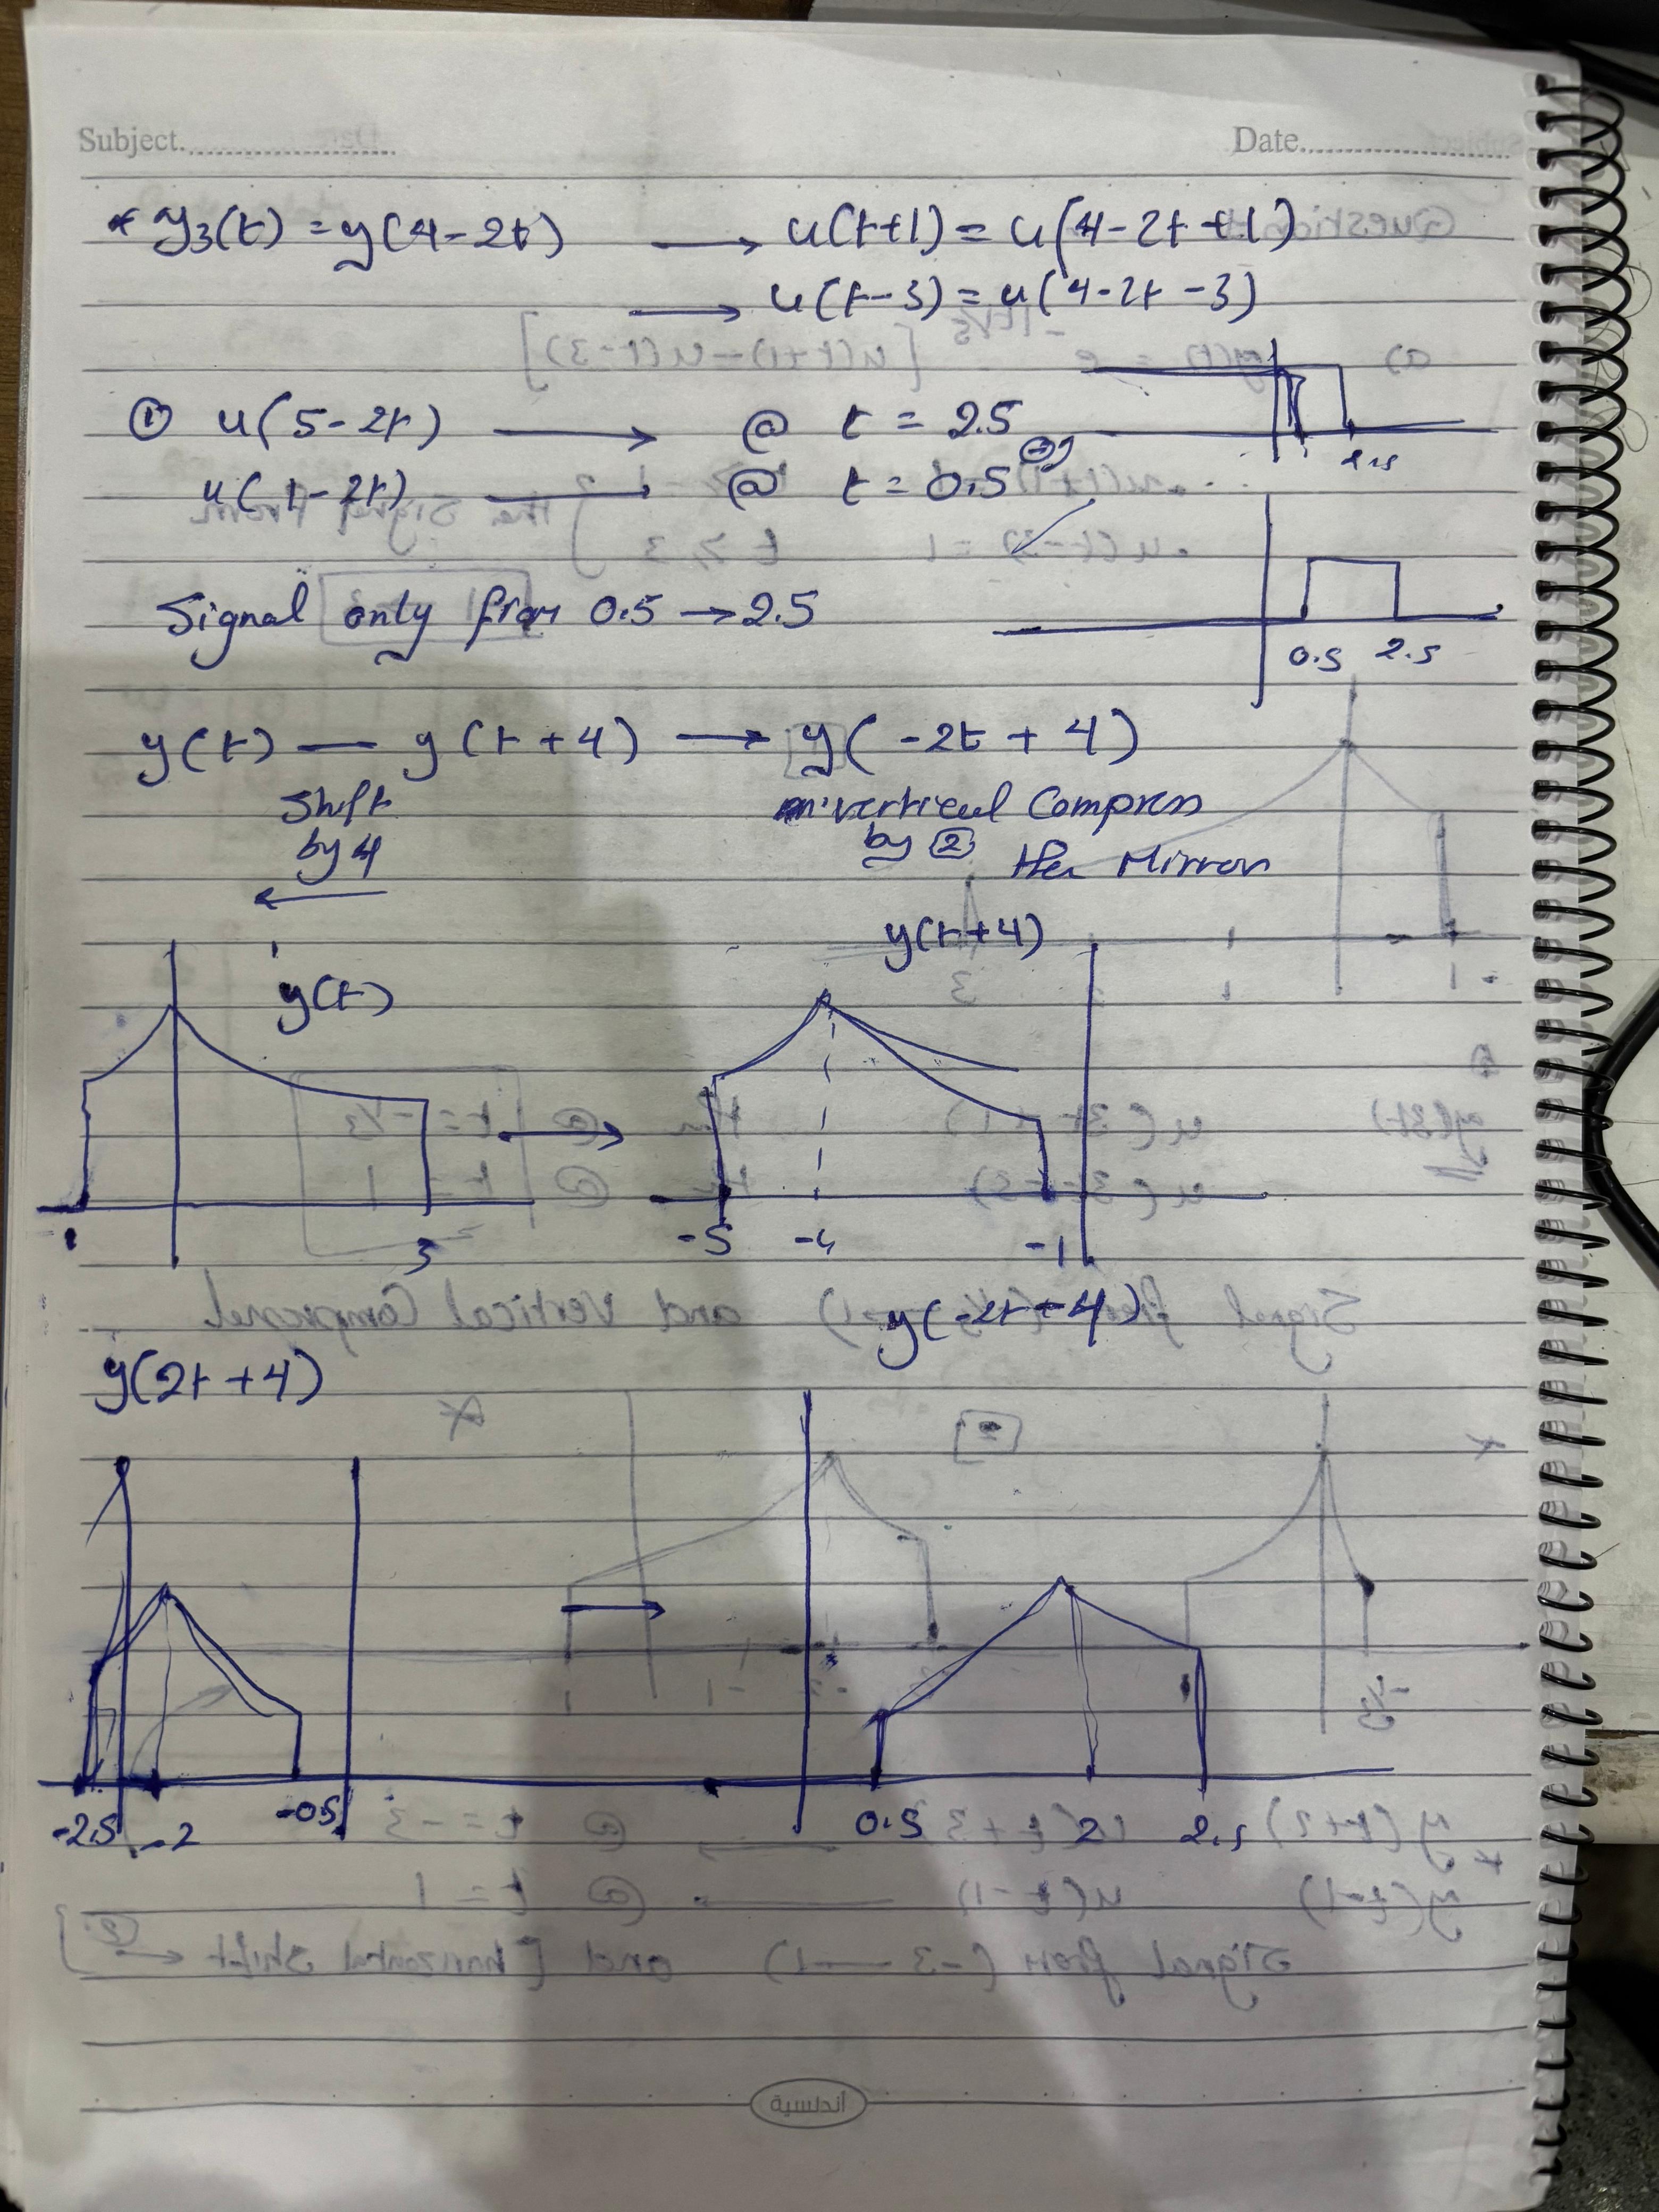 Subject.
Date.
* y₃(t) = y(4-2t) → u(t+1) = u(4-2t+1)
→ u(t-3) = u(4-2t-3)
① u(5-2t) → @ t = 2.5
2.5
u(1-2t) → @ t = 0.5
Signal only from 0.5 → 2.5
0.5 2.5
y(t) — y(t+4) → y(-2t+4)
Shift
by 4
←
vertical Compress
by 2
the Mirror
y(t)
y(t+4)
3
-5 -4 -1
y(-2t+4)
y(2t+4)
-2.5 -2 -0.5
0.5 2 2.5
أندلسية